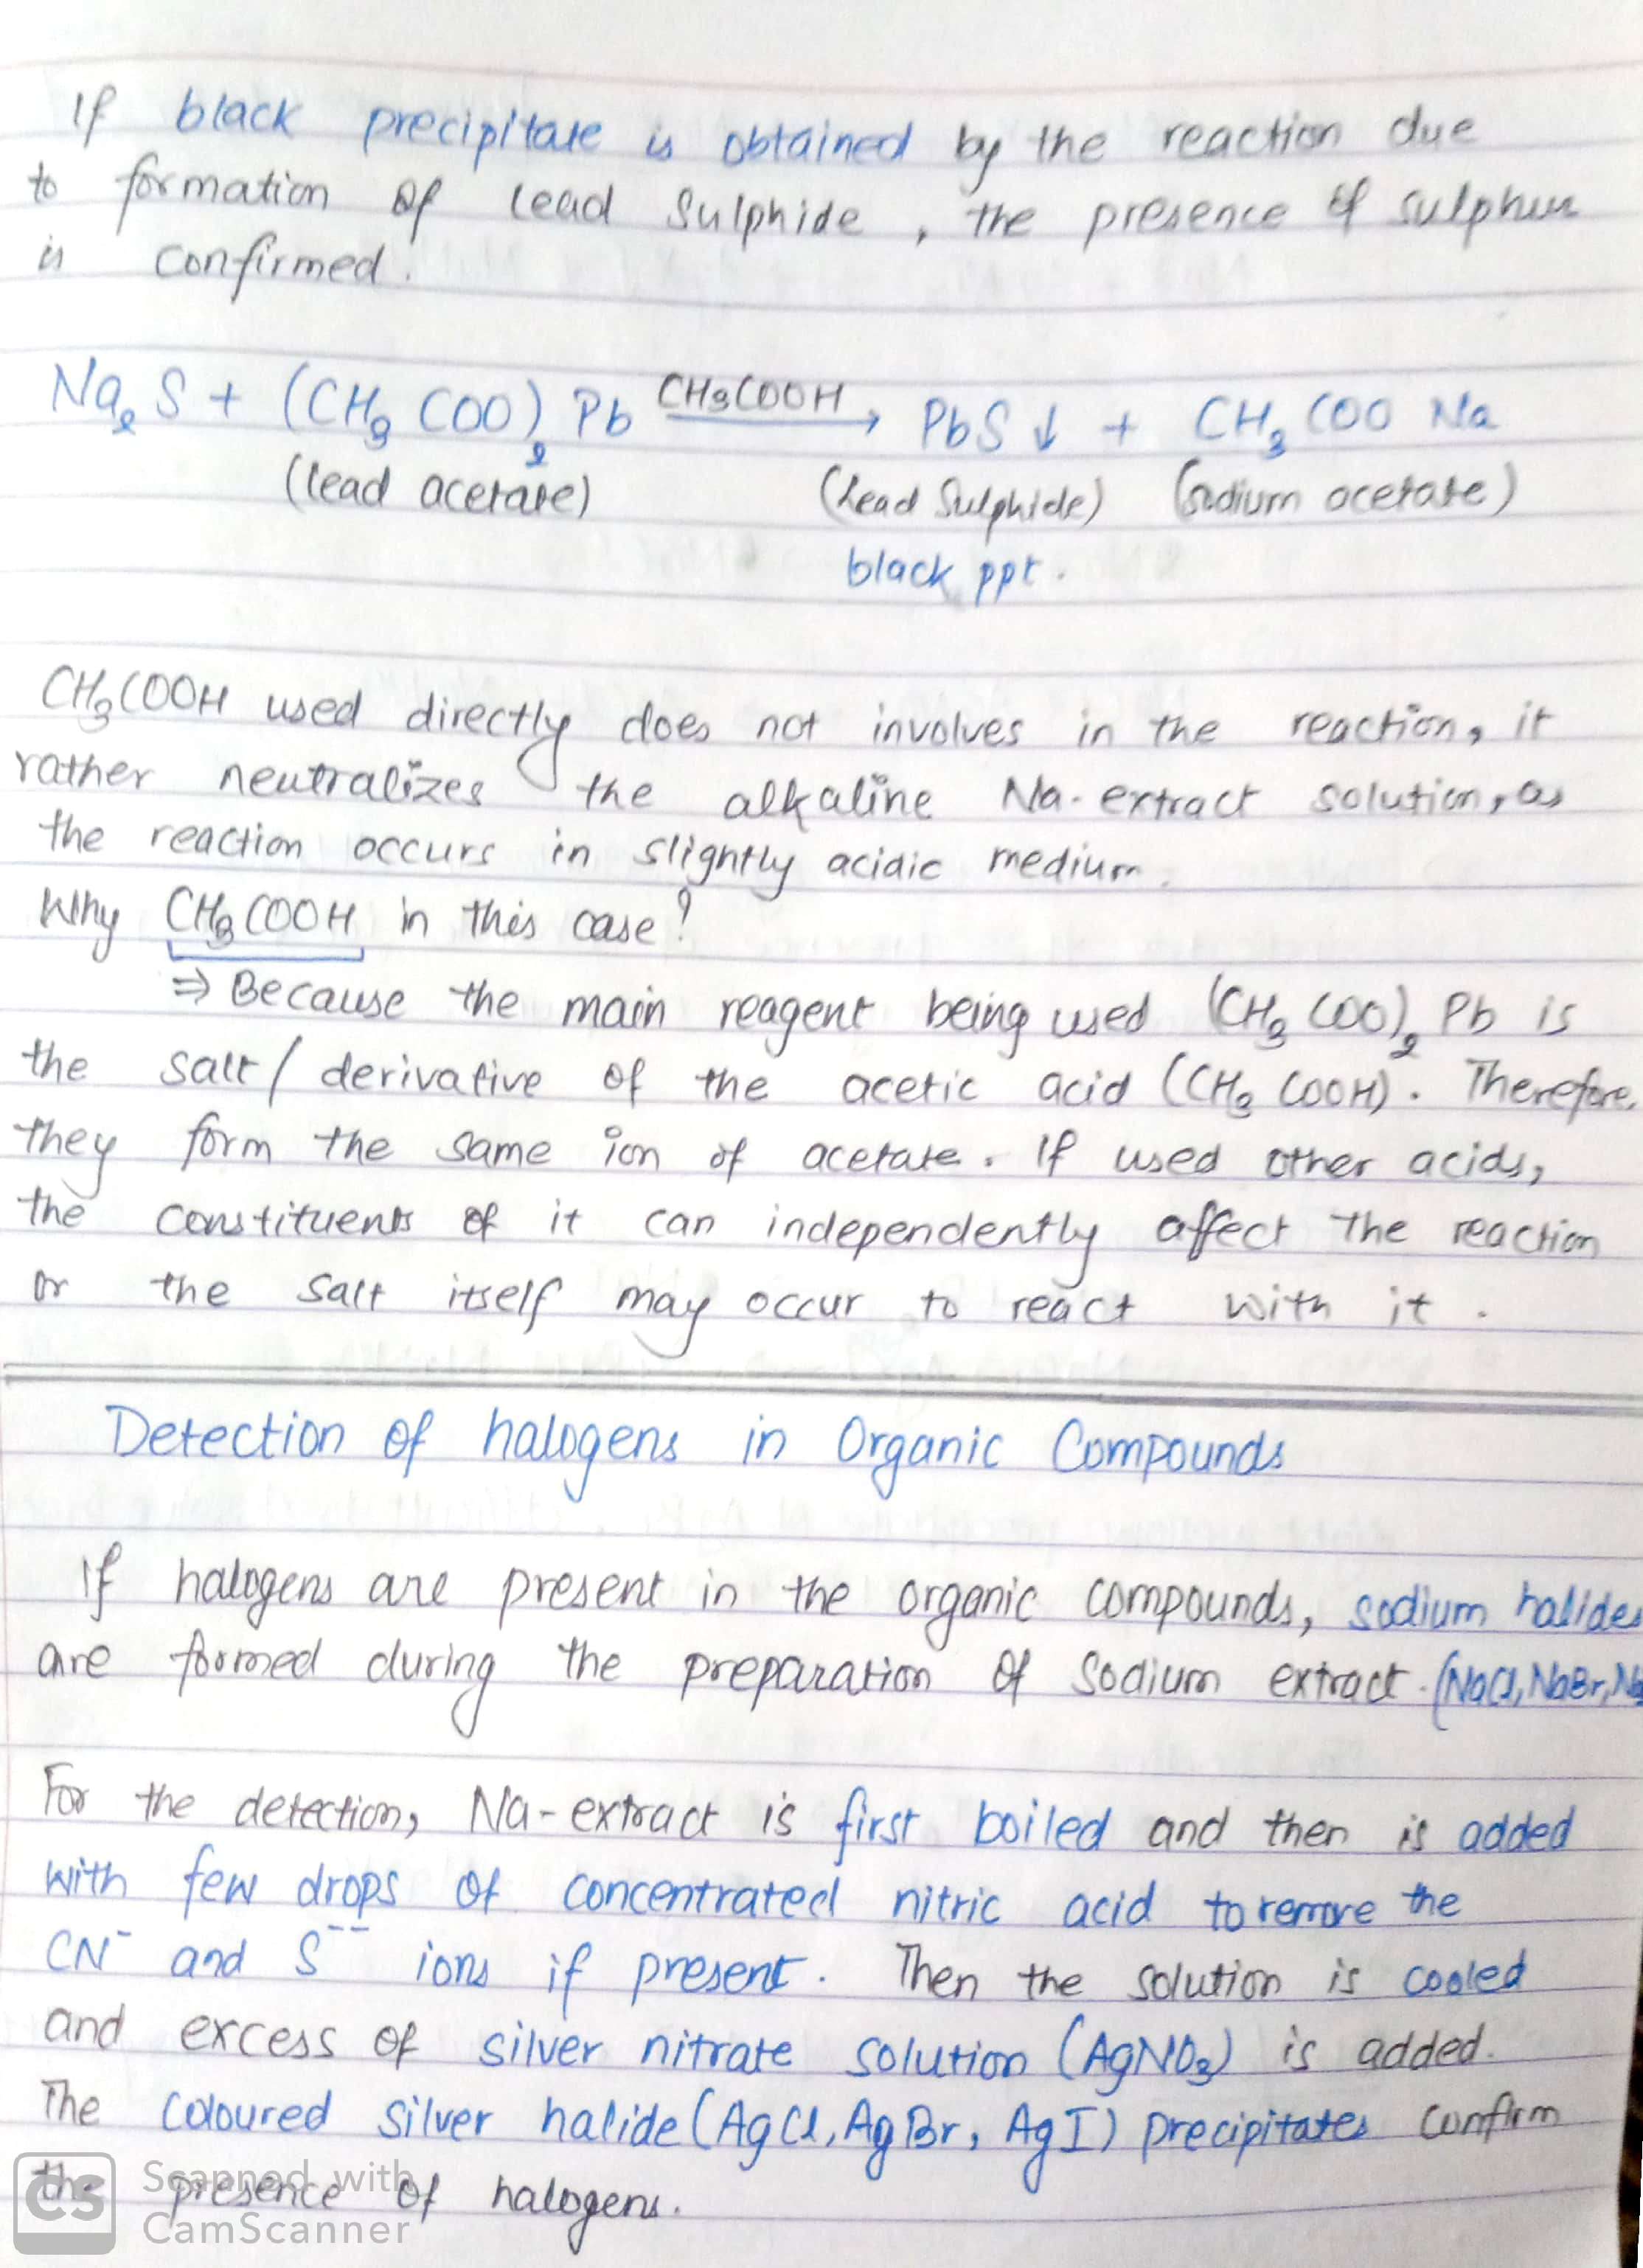 If black precipitate is obtained by the reaction due
to formation of lead Sulphide, the presence of sulphur
is confirmed.
Na₂S + (CH₃COO)₂Pb CH₃COOH→ PbS↓ + CH₃COONa
(lead acetate) (Lead Sulphide) (Sodium acetate)
black ppt.
CH₃COOH used directly does not involves in the reaction, it
rather neutralizes the alkaline Na-extract solution, as
the reaction occurs in slightly acidic medium.
Why CH₃COOH in this case?
⇒ Because the main reagent being used (CH₃COO)₂Pb is
the salt/derivative of the acetic acid (CH₃COOH). Therefore,
they form the same ion of acetate. If used other acids,
the constituents of it can independently affect the reaction
or the salt itself may occur to react with it.
Detection of halogens in Organic Compounds
If halogens are present in the organic compounds, sodium halides
are formed during the preparation of Sodium extract. (NaCl, NaBr, Na
For the detection, Na-extract is first boiled and then is added
with few drops of concentrated nitric acid to remove the
CN⁻ and S⁻⁻ ions if present. Then the solution is cooled
and excess of silver nitrate solution (AgNO₃) is added.
The coloured silver halide (AgCl, AgBr, AgI) precipitates confirm
the presence of halogens.
CS Scanned with
CamScanner